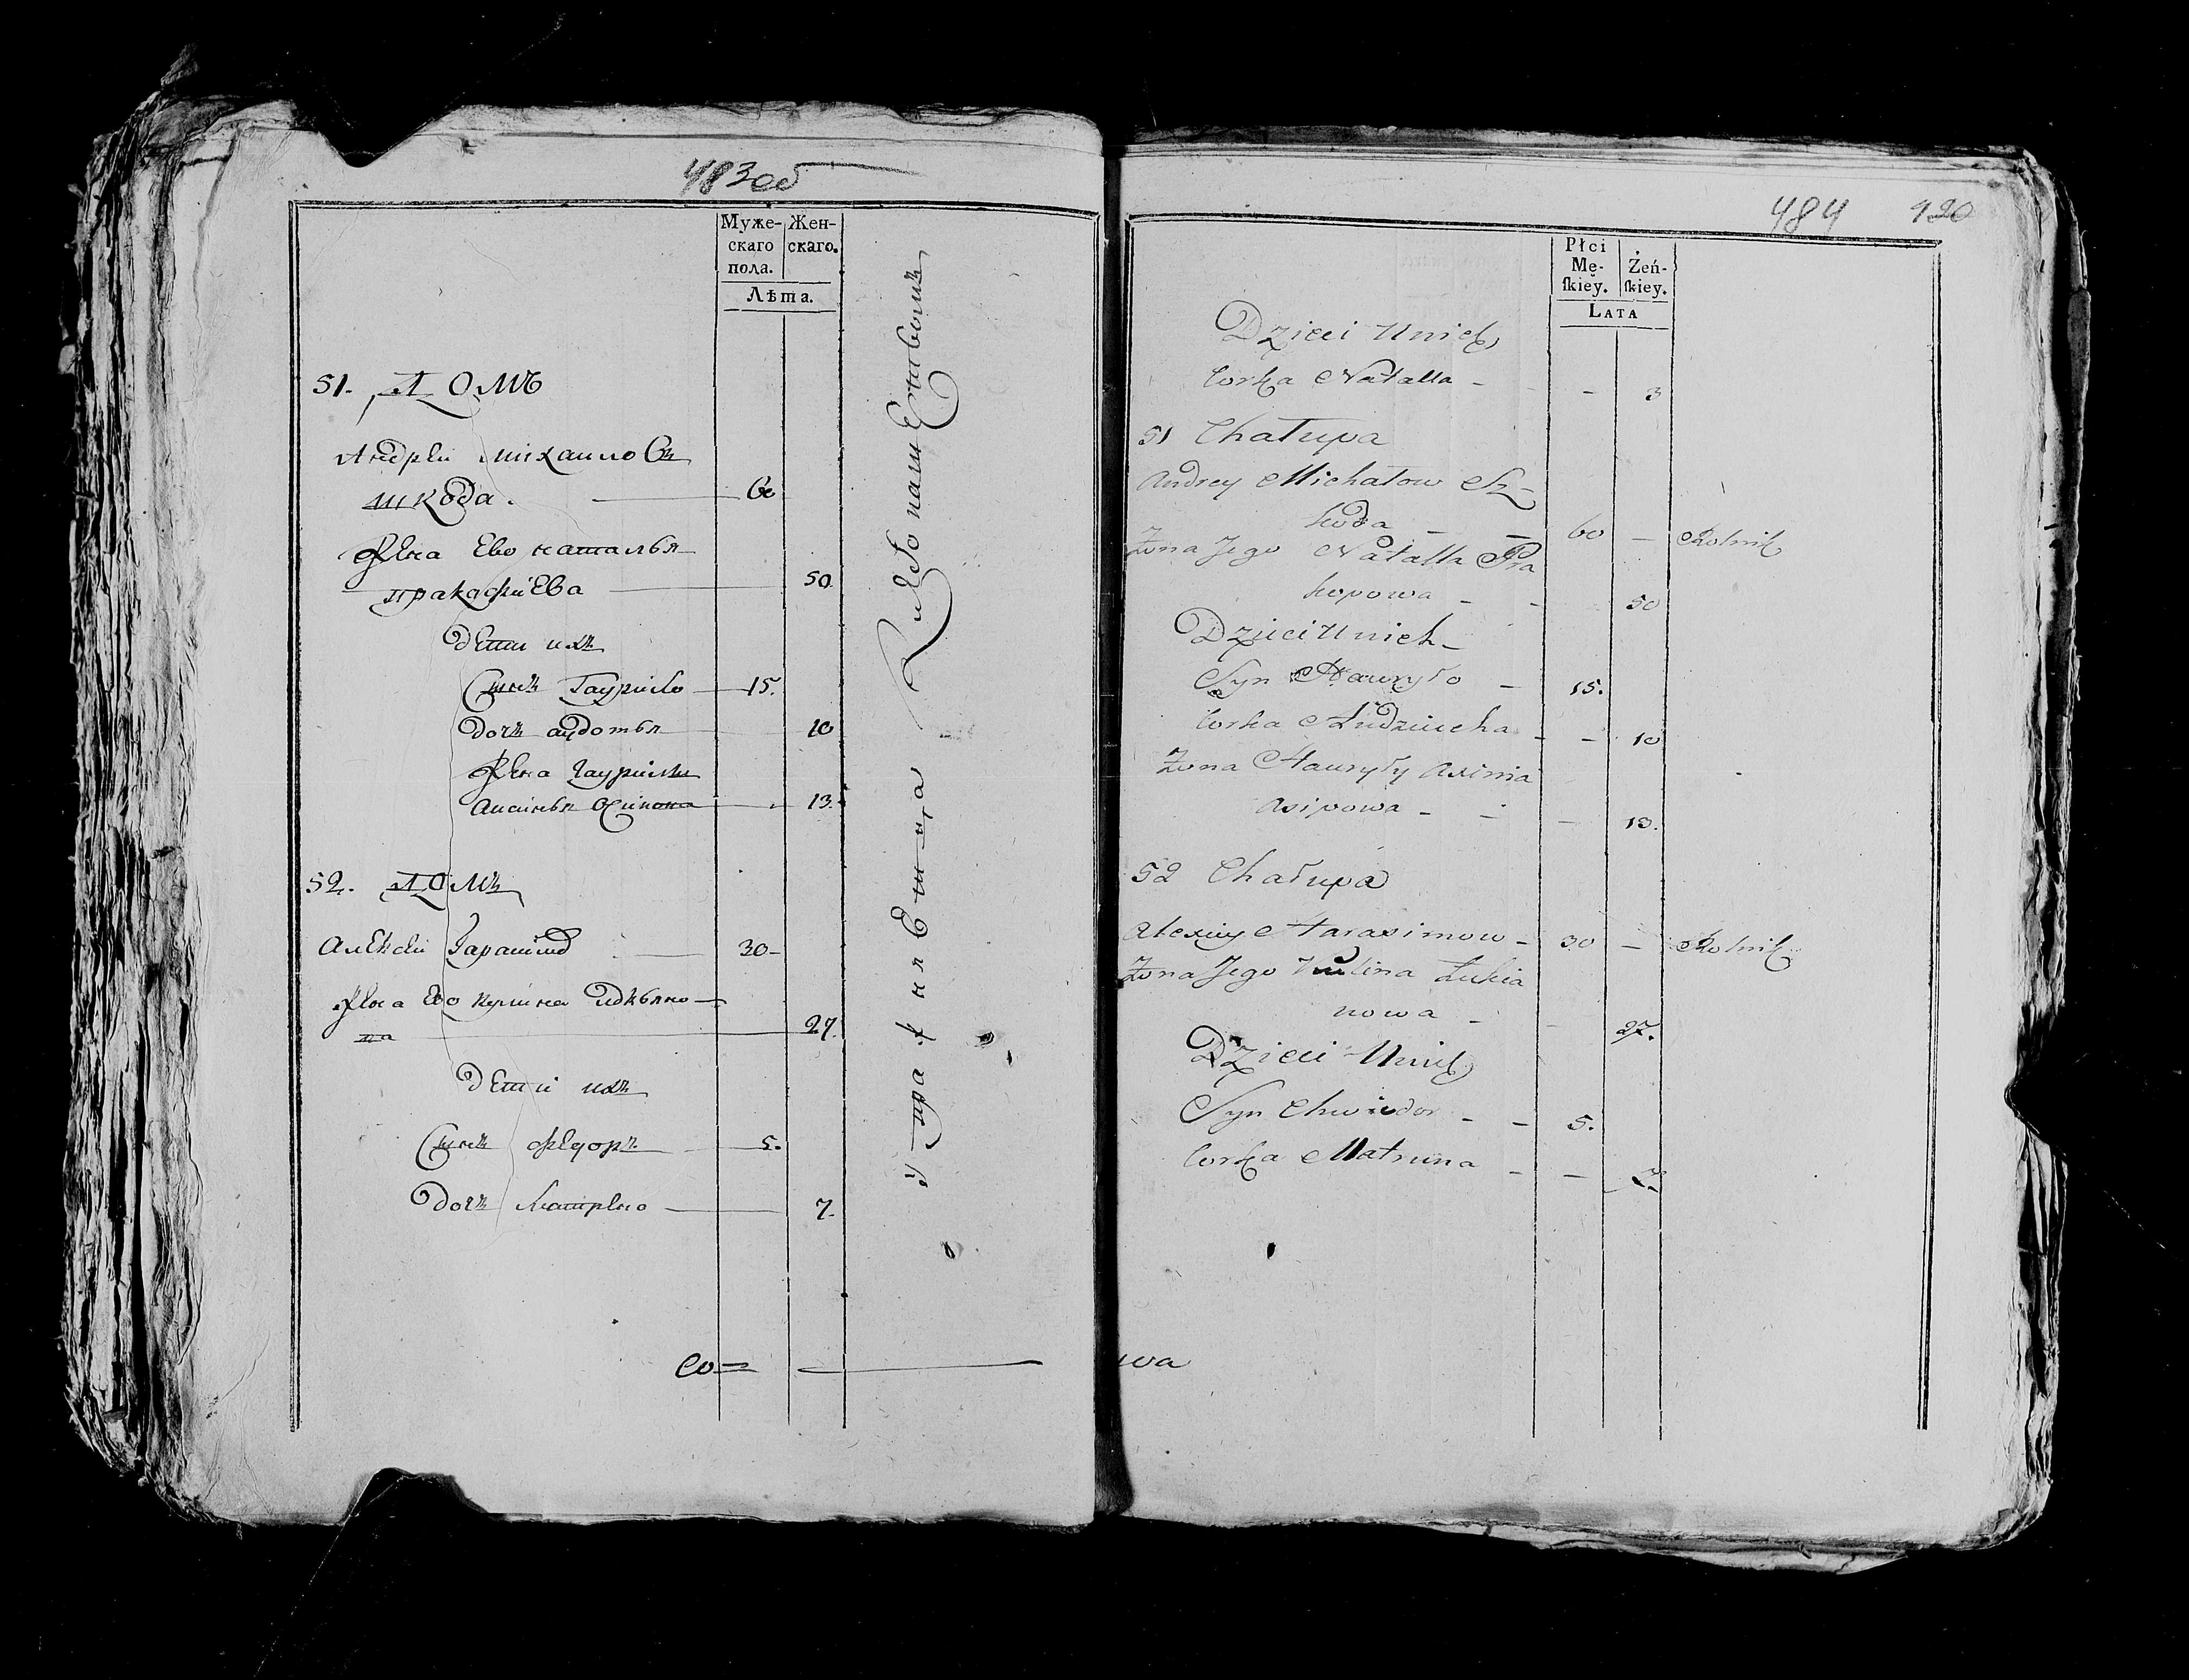 483об
Муже-
скаго
пола.
Жен-
скаго.
Лѣта.
51. ДОМЪ
Андрей михаиловъ
шкода. 60
Жена Ево наталья
пракофиЕва 50
дети ихъ
Сынъ Гаурило 15.
дочъ аудотья 10
Жена Гаурилы
аксинья Осипова 13.
52. ДОМЪ
Алексей Гарасимо 30
Жена Ево кулина
на 27.
дети ихъ
Сынъ федоръ 5.
дочъ Матрено 7.
хлебопашествомъ
упражняетца
Со
484 920
Płci
Mę-
ſkiey.
Żeń-
ſkiey.
LATA
Dzieci Unich
Corka Natalla - - 3
51 Chałupa
Andrey Michałow Sz-
koda - - 60 - Rolnik
Żona Jego Natalla Pra
kopowa - - 50
Dzieci Unich
Syn Hawryło - 15.
Corka Audziucha - - 10
Żona Hawryły Axinia
Asipowa - - - 13.
52 Chałupa
Alexiey Harasimow - 30 - Rolnik
Żona Jego Kulina Łukia
nowa - - 27.
Dzieci Unich
Syn Chwiedor - - 5.
Corka Matruna - - 7.
wa